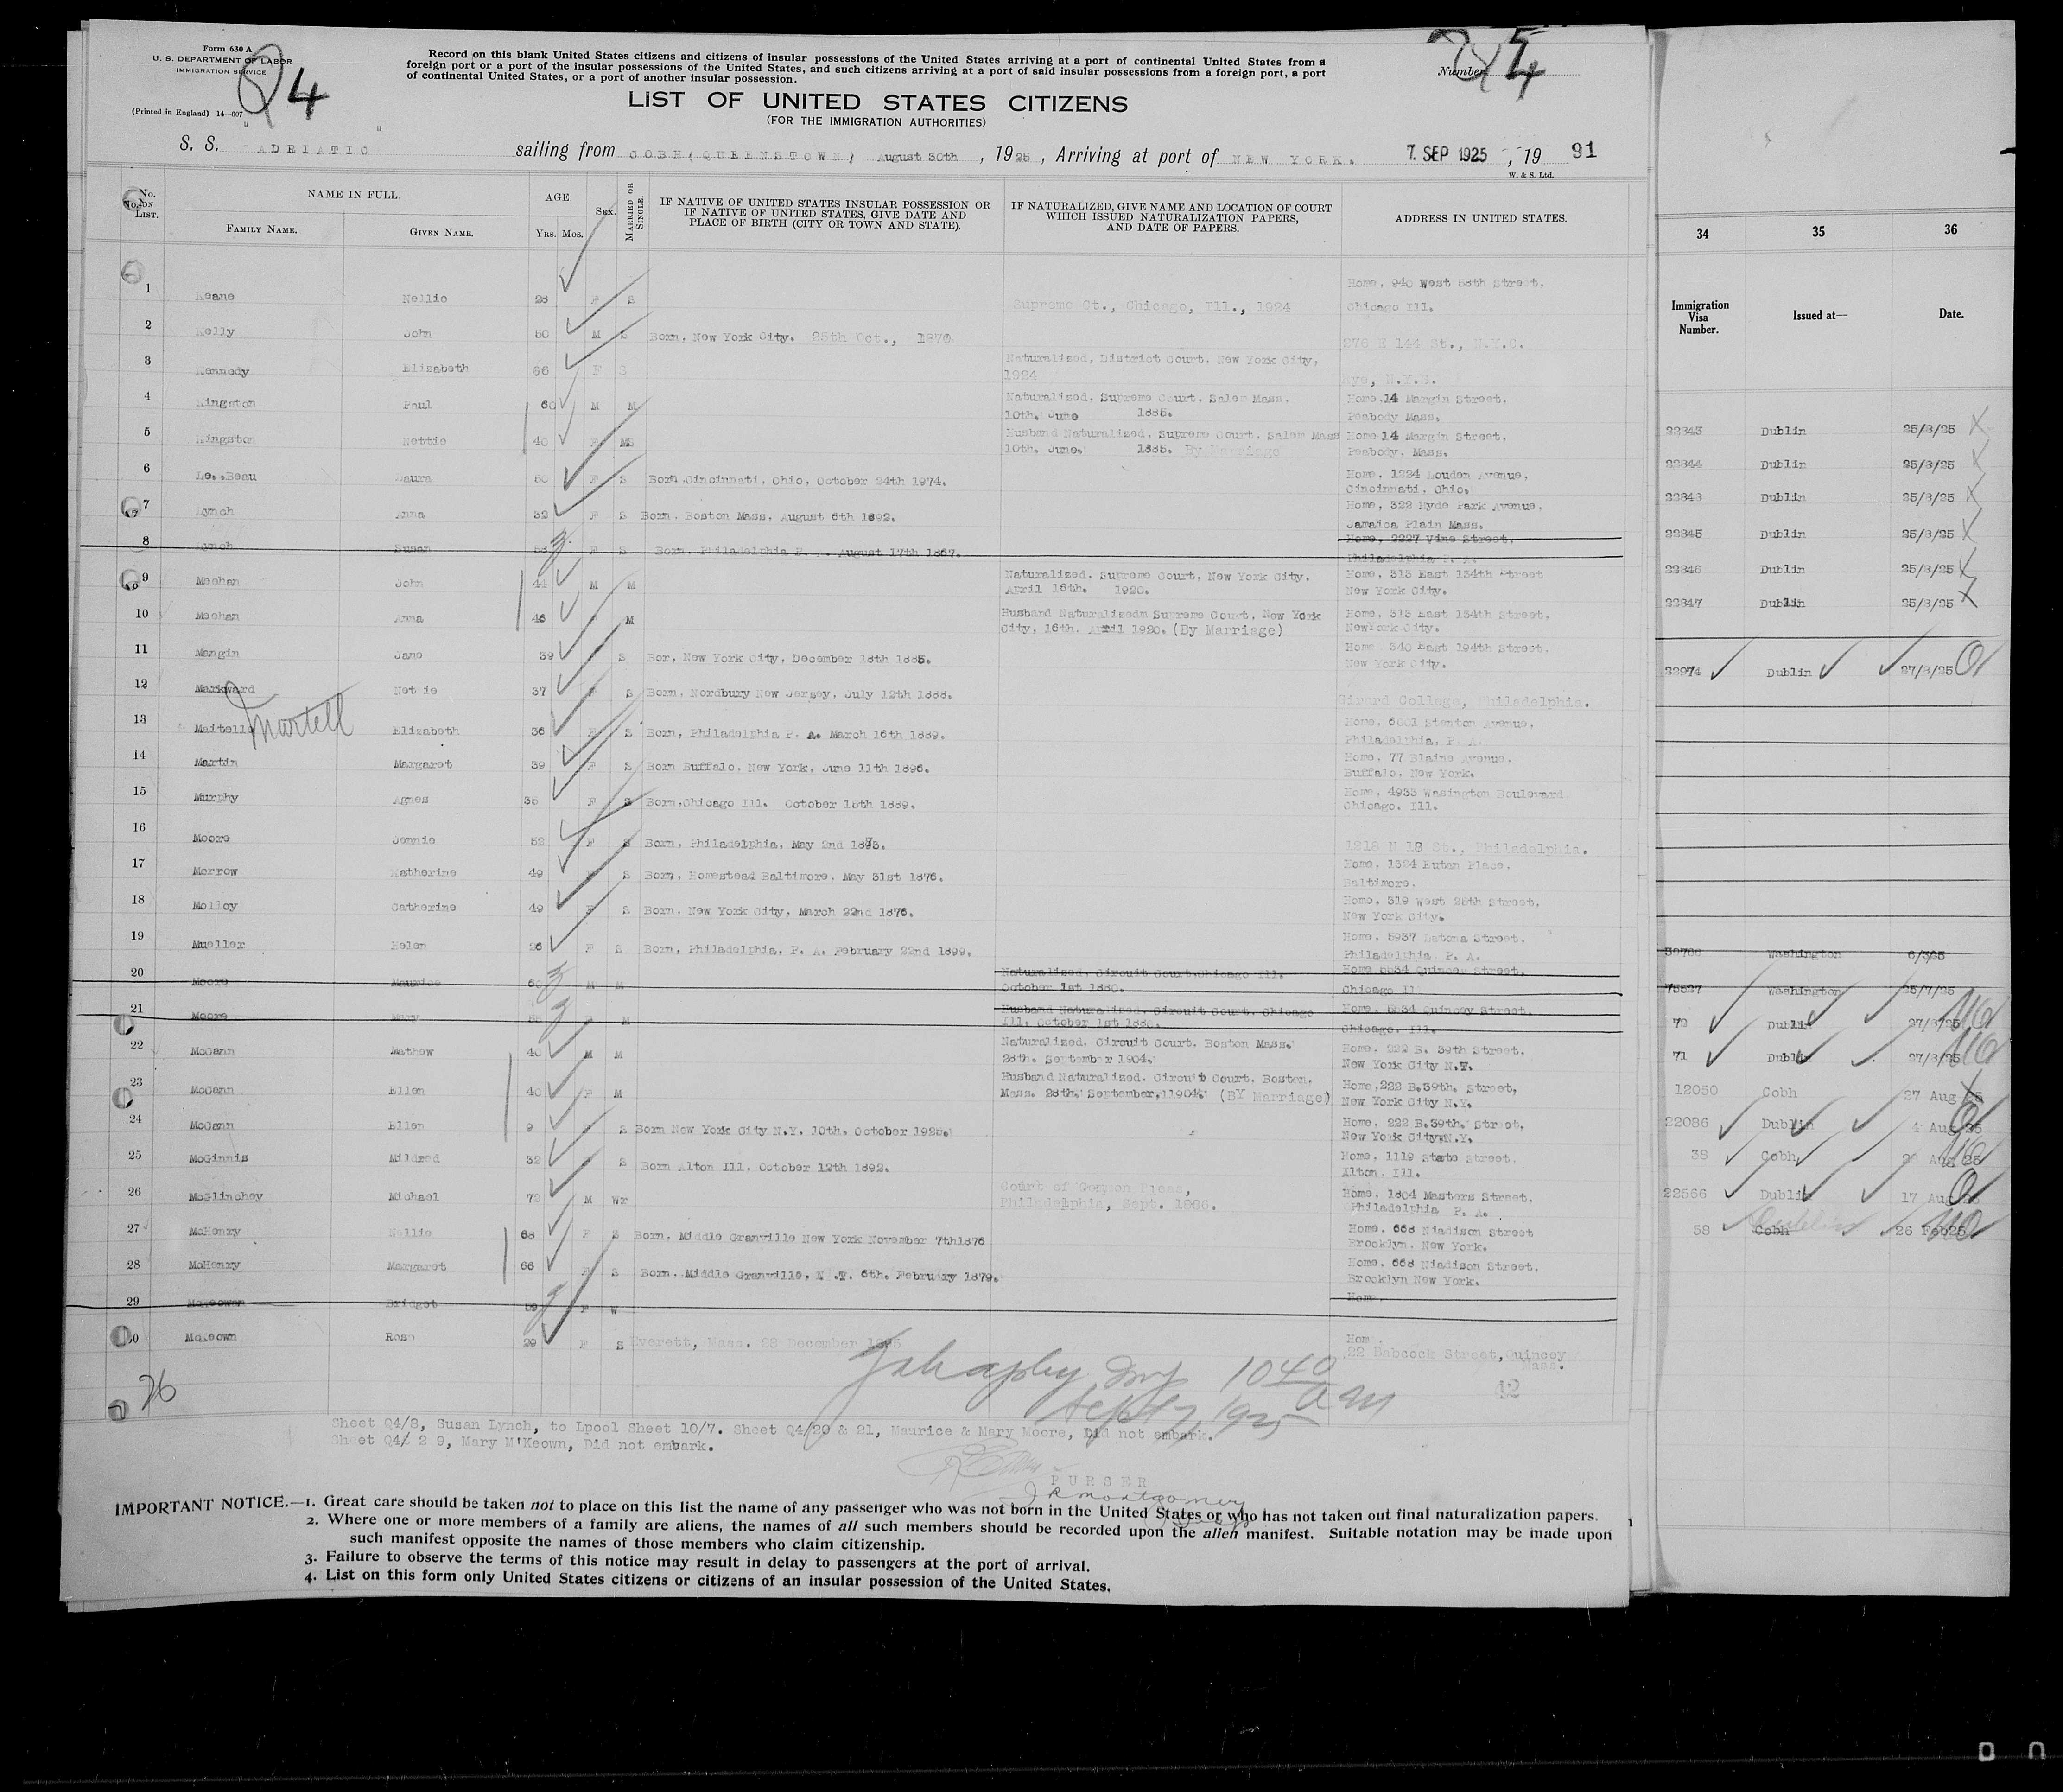 Form 630 A
U. S. DEPARTMENT OF LABOR
IMMIGRATION SERVICE
(Printed in England) 14—607
Q4
Record on this blank United States citizens and citizens of insular possessions of the United States arriving at a port of continental United States from a
foreign port or a port of the insular possessions of the United States, and such citizens arriving at a port of said insular possessions from a foreign port, a port
of continental United States, or a port of another insular possession.
Number
LIST OF UNITED STATES CITIZENS
(FOR THE IMMIGRATION AUTHORITIES)
S. S. "ADRIATIC" sailing from COBH (QUEENSTOWN) August 30th, 1925, Arriving at port of NEW YORK. 7. SEP 1925, 19 91
W. & S. Ltd.
No. on List. NAME IN FULL. AGE Sex. MARRIED OR SINGLE. IF NATIVE OF UNITED STATES INSULAR POSSESSION OR IF NATIVE OF UNITED STATES, GIVE DATE AND PLACE OF BIRTH (CITY OR TOWN AND STATE). IF NATURALIZED, GIVE NAME AND LOCATION OF COURT WHICH ISSUED NATURALIZATION PAPERS, AND DATE OF PAPERS. ADDRESS IN UNITED STATES.
FAMILY NAME. GIVEN NAME. YRS. MOS.
1 Keane Nellie 28 F S Supreme Ct., Chicago, Ill., 1924 Home, 940 West 58th Street, Chicago Ill.
2 Kelly John 50 M S Born, New York City. 25th Oct., 1870 276 E 144 St., N.Y.C.
3 Kennedy Elizabeth 66 F S Naturalized, District Court, New York City, 1924 Rye, N.Y.S.
4 Kingston Paul 60 M M Naturalized, Supreme Court, Salem Mass. 10th. June 1885. Home, 14 Margin Street, Peabody Mass.
5 Kingston Nettie 40 F M Husband Naturalized, Supreme Court, Salem Mass 10th. June. 1885. By Marriage Home 14 Margin Street, Peabody. Mass.
6 Le. Beau Laura 50 F S Born, Cincinnati, Ohio, October 24th 1974. Home. 1224 Louden Avenue, Cincinnati, Ohio.
7 Lynch Anna 32 F S Born, Boston Mass, August 6th 1892. Home, 322 Hyde Park Avenue, Jamaica Plain Mass.
8 Lynch Susan 58 F S Born, Philadelphia P. A. August 17th 1867. Home, 2227 Vine Street, Philadelphia P. A.
9 Meehan John 44 M M Naturalized. Supreme Court, New York City, April 16th. 1920. Home, 313 East 134th Street New York City.
10 Meehan Anna 46 F M Husband Naturalizedm Supreme Court, New York City, 16th. April 1920. (By Marriage) Home, 313 East 134th Street, NewYork City.
11 Mangin Jane 39 F S Bor, New York City, December 18th 1885. Home 340 East 194th Street, New York City.
12 Markward Net ie 37 F S Born, Nordbury New Jersey, July 12th 1888. Girard College, Philadelphia.
13 Maitello Martell Elizabeth 36 F S Born, Philadelphia P. A. March 16th 1889. Home, 6001 Stenton Avenue, Philadelphia, P. A.
14 Martin Margaret 39 F S Born Buffalo, New York, June 11th 1896. Home, 77 Blaine Avenue, Buffalo, New York.
15 Murphy Agnes 35 F S Born, Chicago Ill. October 15th 1889. Home, 4933 Wasington Boulevard. Chicago. Ill.
16 Moore Jennie 52 F S Born, Philadelphia, May 2nd 1873. 1218 N 18 St., Philadelphia.
17 Morrow Katherine 49 F S Born, Homestead Baltimore, May 31st 1876. Home, 1324 Eutan Place, Baltimore.
18 Molloy Catherine 49 F S Born, New York City, March 22nd 1876. Home, 319 West 25th Street, New York City.
19 Mueller Helen 26 F S Born, Philadelphia, P. A. February 22nd 1899. Home, 5937 Latona Street, Philadelphia P. A.
20 Moore Maurice 60 M M Naturalized, Circuit Court, Chicago Ill. October 1st 1880. Home 5534 Quincey Street, Chicago Ill
21 Moore Mary F M Husband Naturalized, Circuit Court, Chicago Ill. October 1st 1880. Home, 5534 Quincey Street, Chicago. Ill.
22 McGann Mathew 40 M M Naturalized. Circuit Court. Boston Mass. 28th. September 1904. Home, 222 E. 39th Street, New York City N.Y.
23 McGann Ellen 40 F M Husband Naturalized. Circuit Court, Boston, Mass. 28th. September, 1904. (BY Marriage) Home, 222 E.39th. Street, New York City N.Y.
24 McGann Ellen 9 F S Born New York City N.Y. 10th, October 1925. Home, 222 E.39th. Street, New York City, N.Y.
25 McGinnis Mildred 32 F S Born Alton Ill. October 12th 1892. Home. 1119 State Street. Alton, Ill.
26 McGlinchey Michael 72 M Wr Court of Common Pleas, Philadelphia, Sept. 1886. Home. 1804 Masters Street, Philadelphia P. A.
27 McHenry Nellie 68 F S Born, Middle Granville New York November 7th1876 Home. 668 Niadison Street Brooklyn. New York.
28 McHenry Margaret 66 F S Born. Middle Granville, N .Y. 6th. February 1879. Home. 668 Niadison Street. Brooklyn New York.
29 McKeown Bridget F W Home.
30 McKeown Rose 29 F S Everett, Mass. 28 December 1895 Home. 22 Babcock Street, Quincey Mass.
26
Sept 7, 1925
1040 AM
42
Sheet Q4/8, Susan Lynch, to Lpool Sheet 10/7. Sheet Q4/20 & 21, Maurice & Mary Moore, Did not embark.
Sheet Q4/ 2 9, Mary M'Keown, Did not embark.
PURSER
J R Montgomery
IMPORTANT NOTICE.—1. Great care should be taken not to place on this list the name of any passenger who was not born in the United States or who has not taken out final naturalization papers.
2. Where one or more members of a family are aliens, the names of all such members should be recorded upon the alien manifest. Suitable notation may be made upon
such manifest opposite the names of those members who claim citizenship.
3. Failure to observe the terms of this notice may result in delay to passengers at the port of arrival.
4. List on this form only United States citizens or citizens of an insular possession of the United States.
34 35 36
Immigration Visa Number. Issued at— Date.
22843 Dublin 25/8/25
22844 Dublin 25/8/25
22848 Dublin 25/8/25
22845 Dublin 25/8/25
22846 Dublin 25/8/25
22847 Dublin 25/8/25
22974 Dublin 27/8/25
Washington
Washington 25/7/25
72 Dublin 27/8/25
71 Dublin 27/8/25
12050 Cobh 27 Aug
22086 Dublin 4 Aug 25
38 Cobh Aug 25
22566 Dublin 17 Aug
58 Cobh Dublin 26 Feb25